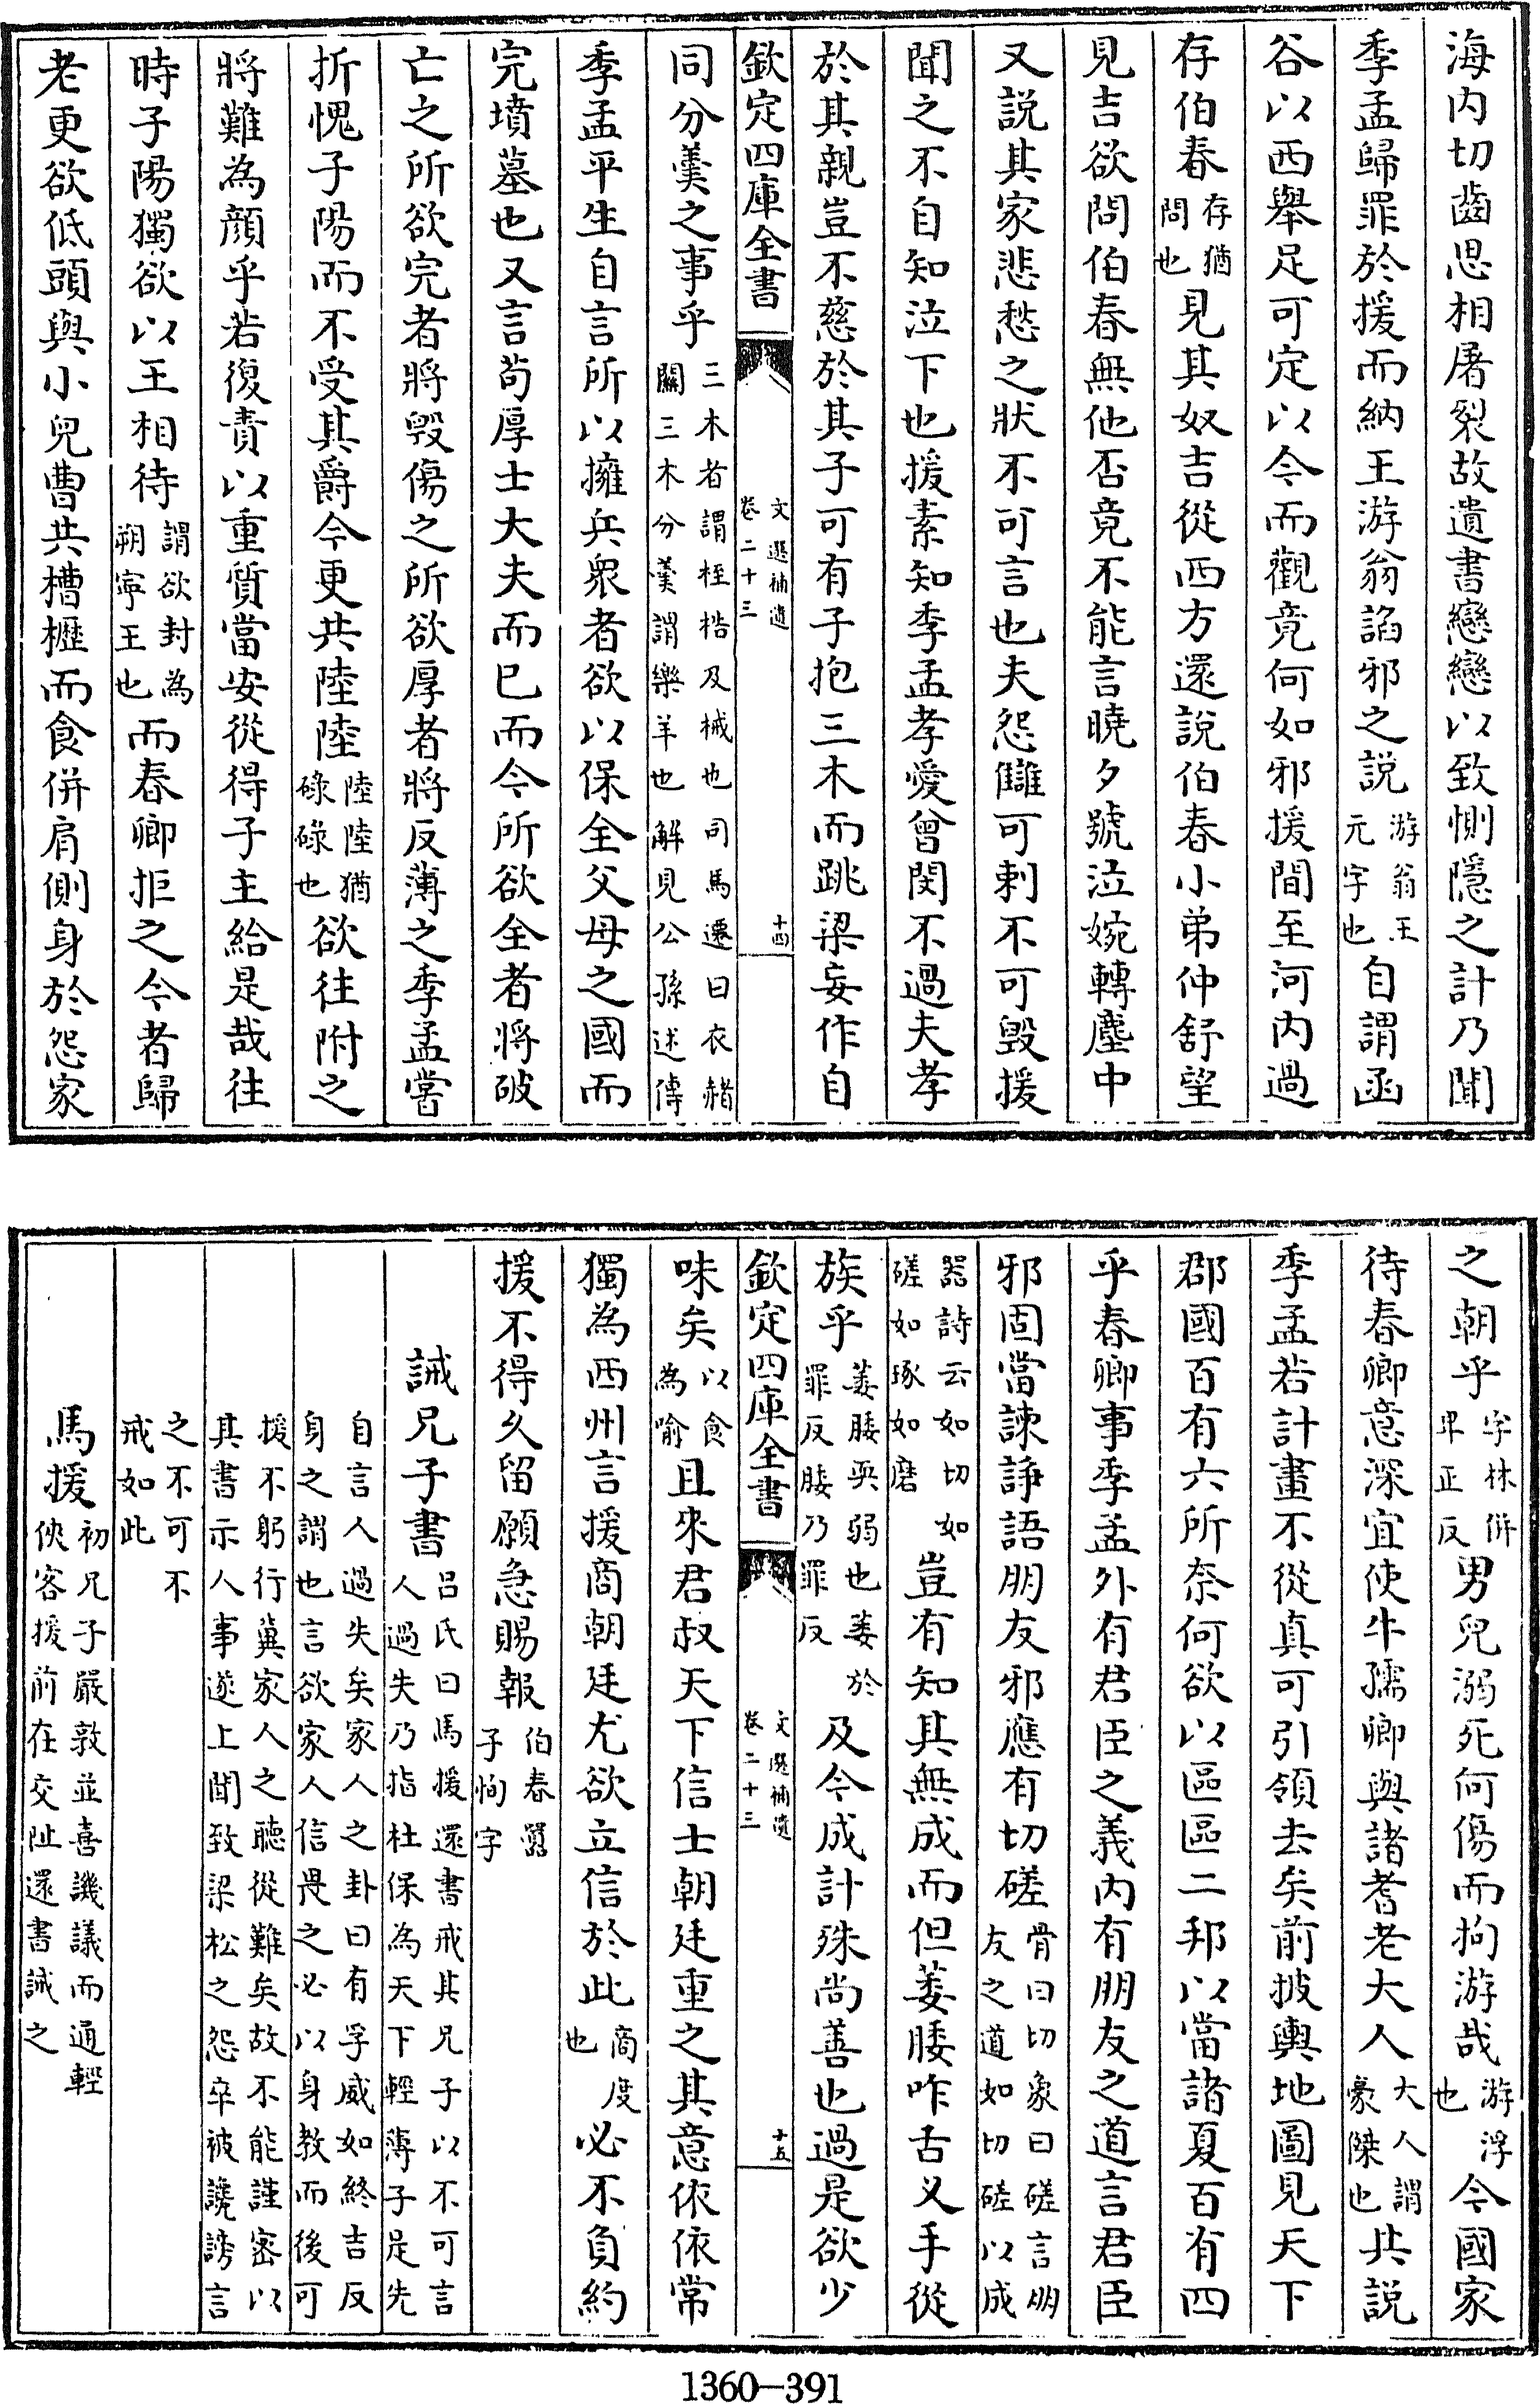 海内切齒思相屠裂故遺書戀戀以致惻隱之計乃聞
季孟歸罪於援而納王游翁諂邪之說游翁王元字也自謂函
谷以西舉足可定以今而觀竟何如邪援間至河内過
存伯春存猶問也見其奴吉從西方還說伯春小弟仲舒望
見吉欲問伯春無他否竟不能言曉夕號泣婉轉塵中
又說其家悲愁之狀不可言也夫怨讎可刺不可毁援
聞之不自知泣下也援素知季孟孝愛曾閔不過夫孝
於其親豈不慈於其子可有子抱三木而跳梁妄作自
欽定四庫全書 文選補遺卷二十三 十四
同分羹之事乎三木者謂桎梏及械也司馬遷曰衣赭關三木分羹謂樂羊也解見公孫述傳
季孟平生自言所以擁兵衆者欲以保全父母之國而
完墳墓也又言苟厚士大夫而已而今所欲全者將破
亡之所欲完者將毁傷之所欲厚者將反薄之季孟嘗
折愧子陽而不受其爵今更共陸陸陸陸猶碌碌也欲往附之
將難為顔乎若復責以重質當安從得子主給是哉往
時子陽獨欲以王相待謂欲封為朔寧王也而春卿拒之今者歸
老更欲低頭與小兒曹共槽櫪而食併肩側身於怨家
之朝乎字林併畀正反男兒溺死何傷而拘游哉游浮也今國家
待春卿意深宜使牛孺卿與諸耆老大人大人謂豪傑也共說
季孟若計畫不從真可引領去矣前披輿地圖見天下
郡國百有六所奈何欲以區區二邦以當諸夏百有四
乎春卿事季孟外有君臣之義内有朋友之道言君臣
邪固當諫諍語朋友邪應有切磋骨曰切象曰磋言朋友之道如切磋以成
器詩云如切如磋如琢如磨豈有知其無成而但萎腇咋舌义手從
族乎萎腇耎弱也萎於罪反腇乃罪反及今成計殊尚善也過是欲少
欽定四庫全書 文選補遺卷二十三 十五
味矣以食為喻且來君叔天下信士朝廷重之其意依依常
獨為西州言援商朝廷尤欲立信於此商度也必不負約
援不得久留願急賜報伯春囂子恂字
誡兄子書吕氏曰馬援還書戒其兄子以不可言人過失乃指杜保為天下輕薄子是先
自言人過失矣家人之卦曰有孚威如終吉反身之謂也言欲家人信畏之必以身教而後可
援不躬行冀家人之聽從難矣故不能謹密以其書示人事遂上聞致梁松之怨卒被讒謗言
之不可不戒如此
馬援初兄子嚴敦並喜譏議而通輕俠客援前在交趾還書誡之
1360—391